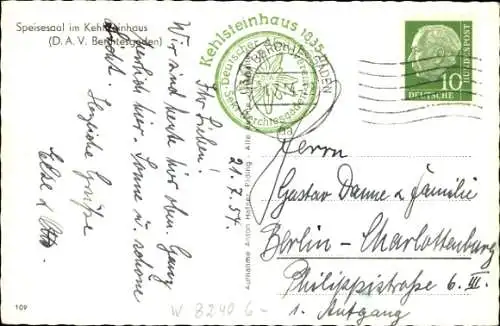 Speisesaal im Kehlsteinhaus
(D. A. V. Berchtesgaden)
21.7.54.
Ihr Lieben!
Wir sind heute hier oben. Ganz
herrlich hier. Sonne u. schöne
Herzliche Grüße
Else & Otto.
Kehlsteinhaus 1835
Deutscher Alpenverein
Sekt. Berchtesgaden
BERCHTESGADEN
10
DEUTSCHE
BUNDESPOST
Aufnahme Anton
Herrn
Gustav Danne & Familie
Berlin - Charlottenburg
Philippistraße 6. III.
1. Aufgang
109
W 8240 6-